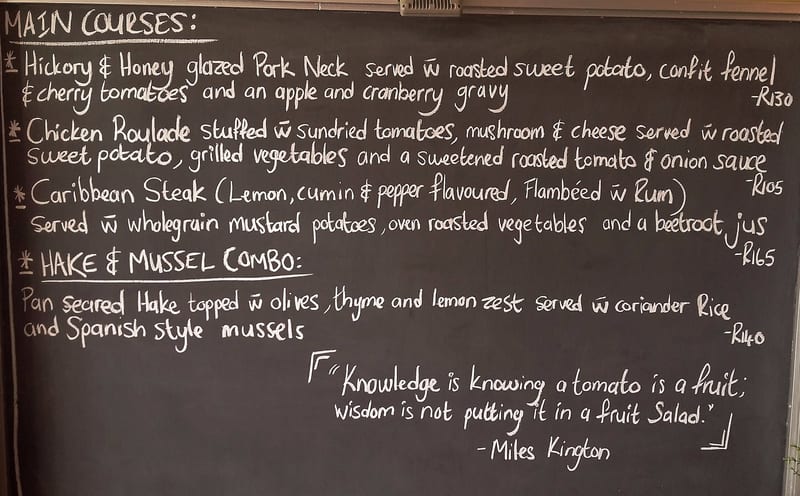 MAIN COURSES:
* Hickory & Honey glazed Pork Neck served w̄ roasted sweet potato, confit fennel
& cherry tomatoes and an apple and cranberry gravy
-R130
* Chicken Roulade stuffed w̄ sundried tomatoes, mushroom & cheese served w̄ roasted
sweet potato, grilled vegetables and a sweetened roasted tomato & onion sauce
-R105
* Caribbean Steak (Lemon, cumin & pepper flavoured, Flambéed w̄ Rum)
served w̄ wholegrain mustard potatoes, oven roasted vegetables and a beetroot jus
-R165
* HAKE & MUSSEL COMBO:
Pan seared Hake topped w̄ olives, thyme and lemon zest served w̄ coriander Rice
and Spanish style mussels
-R140
"Knowledge is knowing a tomato is a fruit;
wisdom is not putting it in a fruit Salad."
- Miles Kington